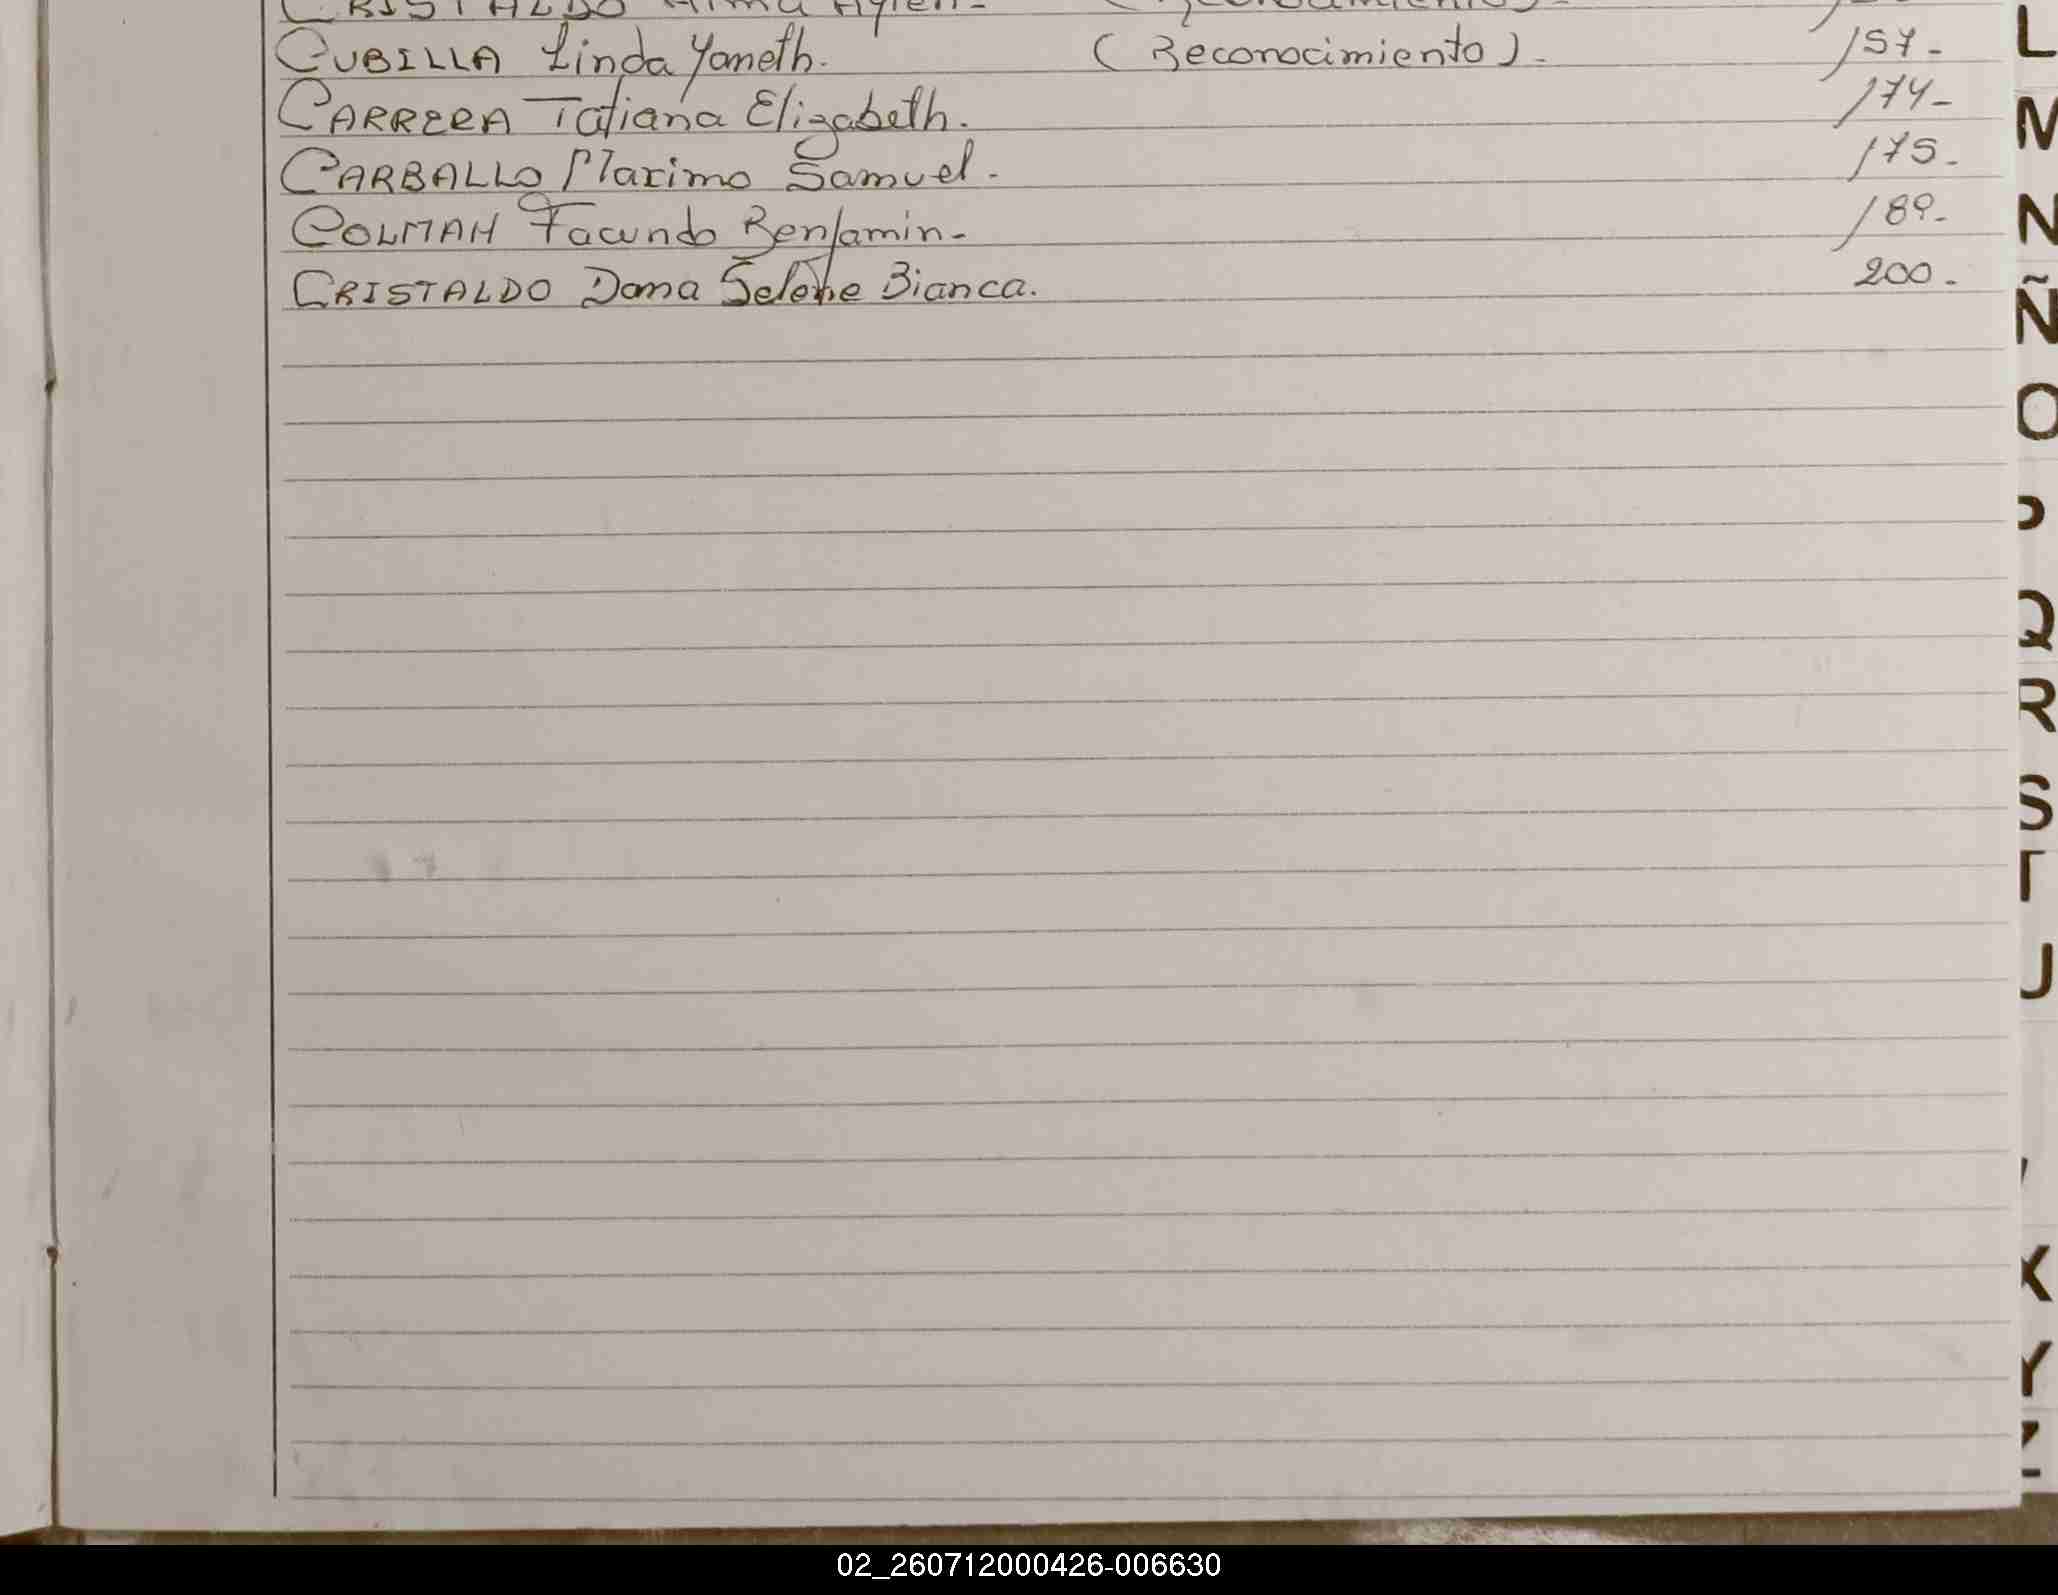 CRISTALDO Alma Aylen. (Reconocimiento).
CUBILLA Linda Yaneth. (Reconocimiento). 157.
CARRERA Tatiana Elizabeth. 174
CARBALLO Maximo Samuel. 175.
COLMAN Facundo Benjamin. 189.
CRISTALDO Dana Selene Bianca. 200.
L
M
N
Ñ
O
P
Q
R
S
T
U
X
Y
Z
02_260712000426-006630